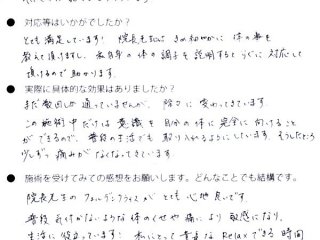 ● 対応等はいかがでしたか？
とても満足しています！ 院長先生は きめ細やかに 体の事を
教えて頂けますし、自分の体の調子を説明するとすぐに対応して
頂けるので助かります。
● 実際に具体的な効果はありましたか？
まだ数回しか通っていませんが、除々に変わってきています。
この施術中だけは意識を自分の体に完全に向けること
ができるので、普段の生活でも取り入れるようにしています。そうしたところ
少しずつ痛みがなくなってきています
● 施術を受けてみての感想をお願いします。どんなことでも結構です。
院長先生の がとても心地良いです。
普段気付かないような体のくせや痛により敏感になり、
生活に役立っています！ 私にとって貴重なRelaxできる時間